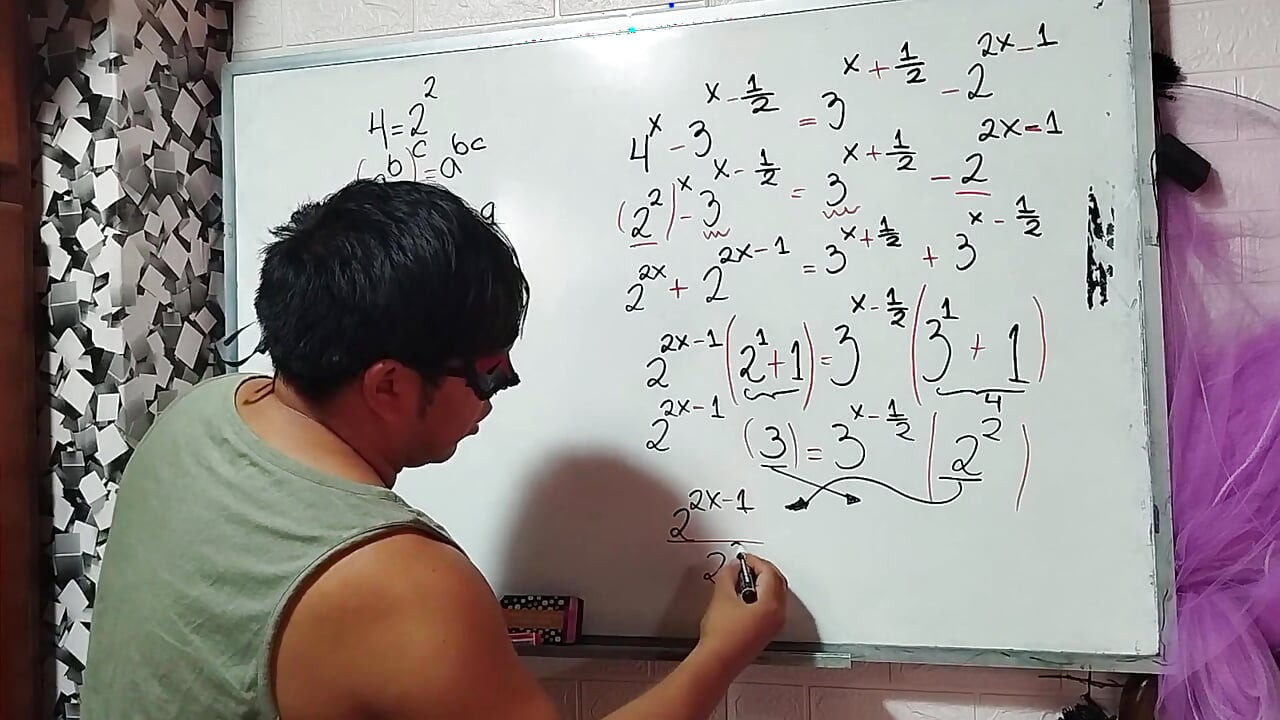 4=2^2
(a^b)^c=a^bc
a
4^x - 3^x-1/2 = 3^x+1/2 - 2^2x-1
(2^2)^x - 3^x-1/2 = 3^x+1/2 - 2^2x-1
2^2x + 2^2x-1 = 3^x+1/2 + 3^x-1/2
2^2x-1 (2^1+1) = 3^x-1/2 (3^1 + 1)
4
2^2x-1 (3) = 3^x-1/2 (2^2)
2^2x-1
2